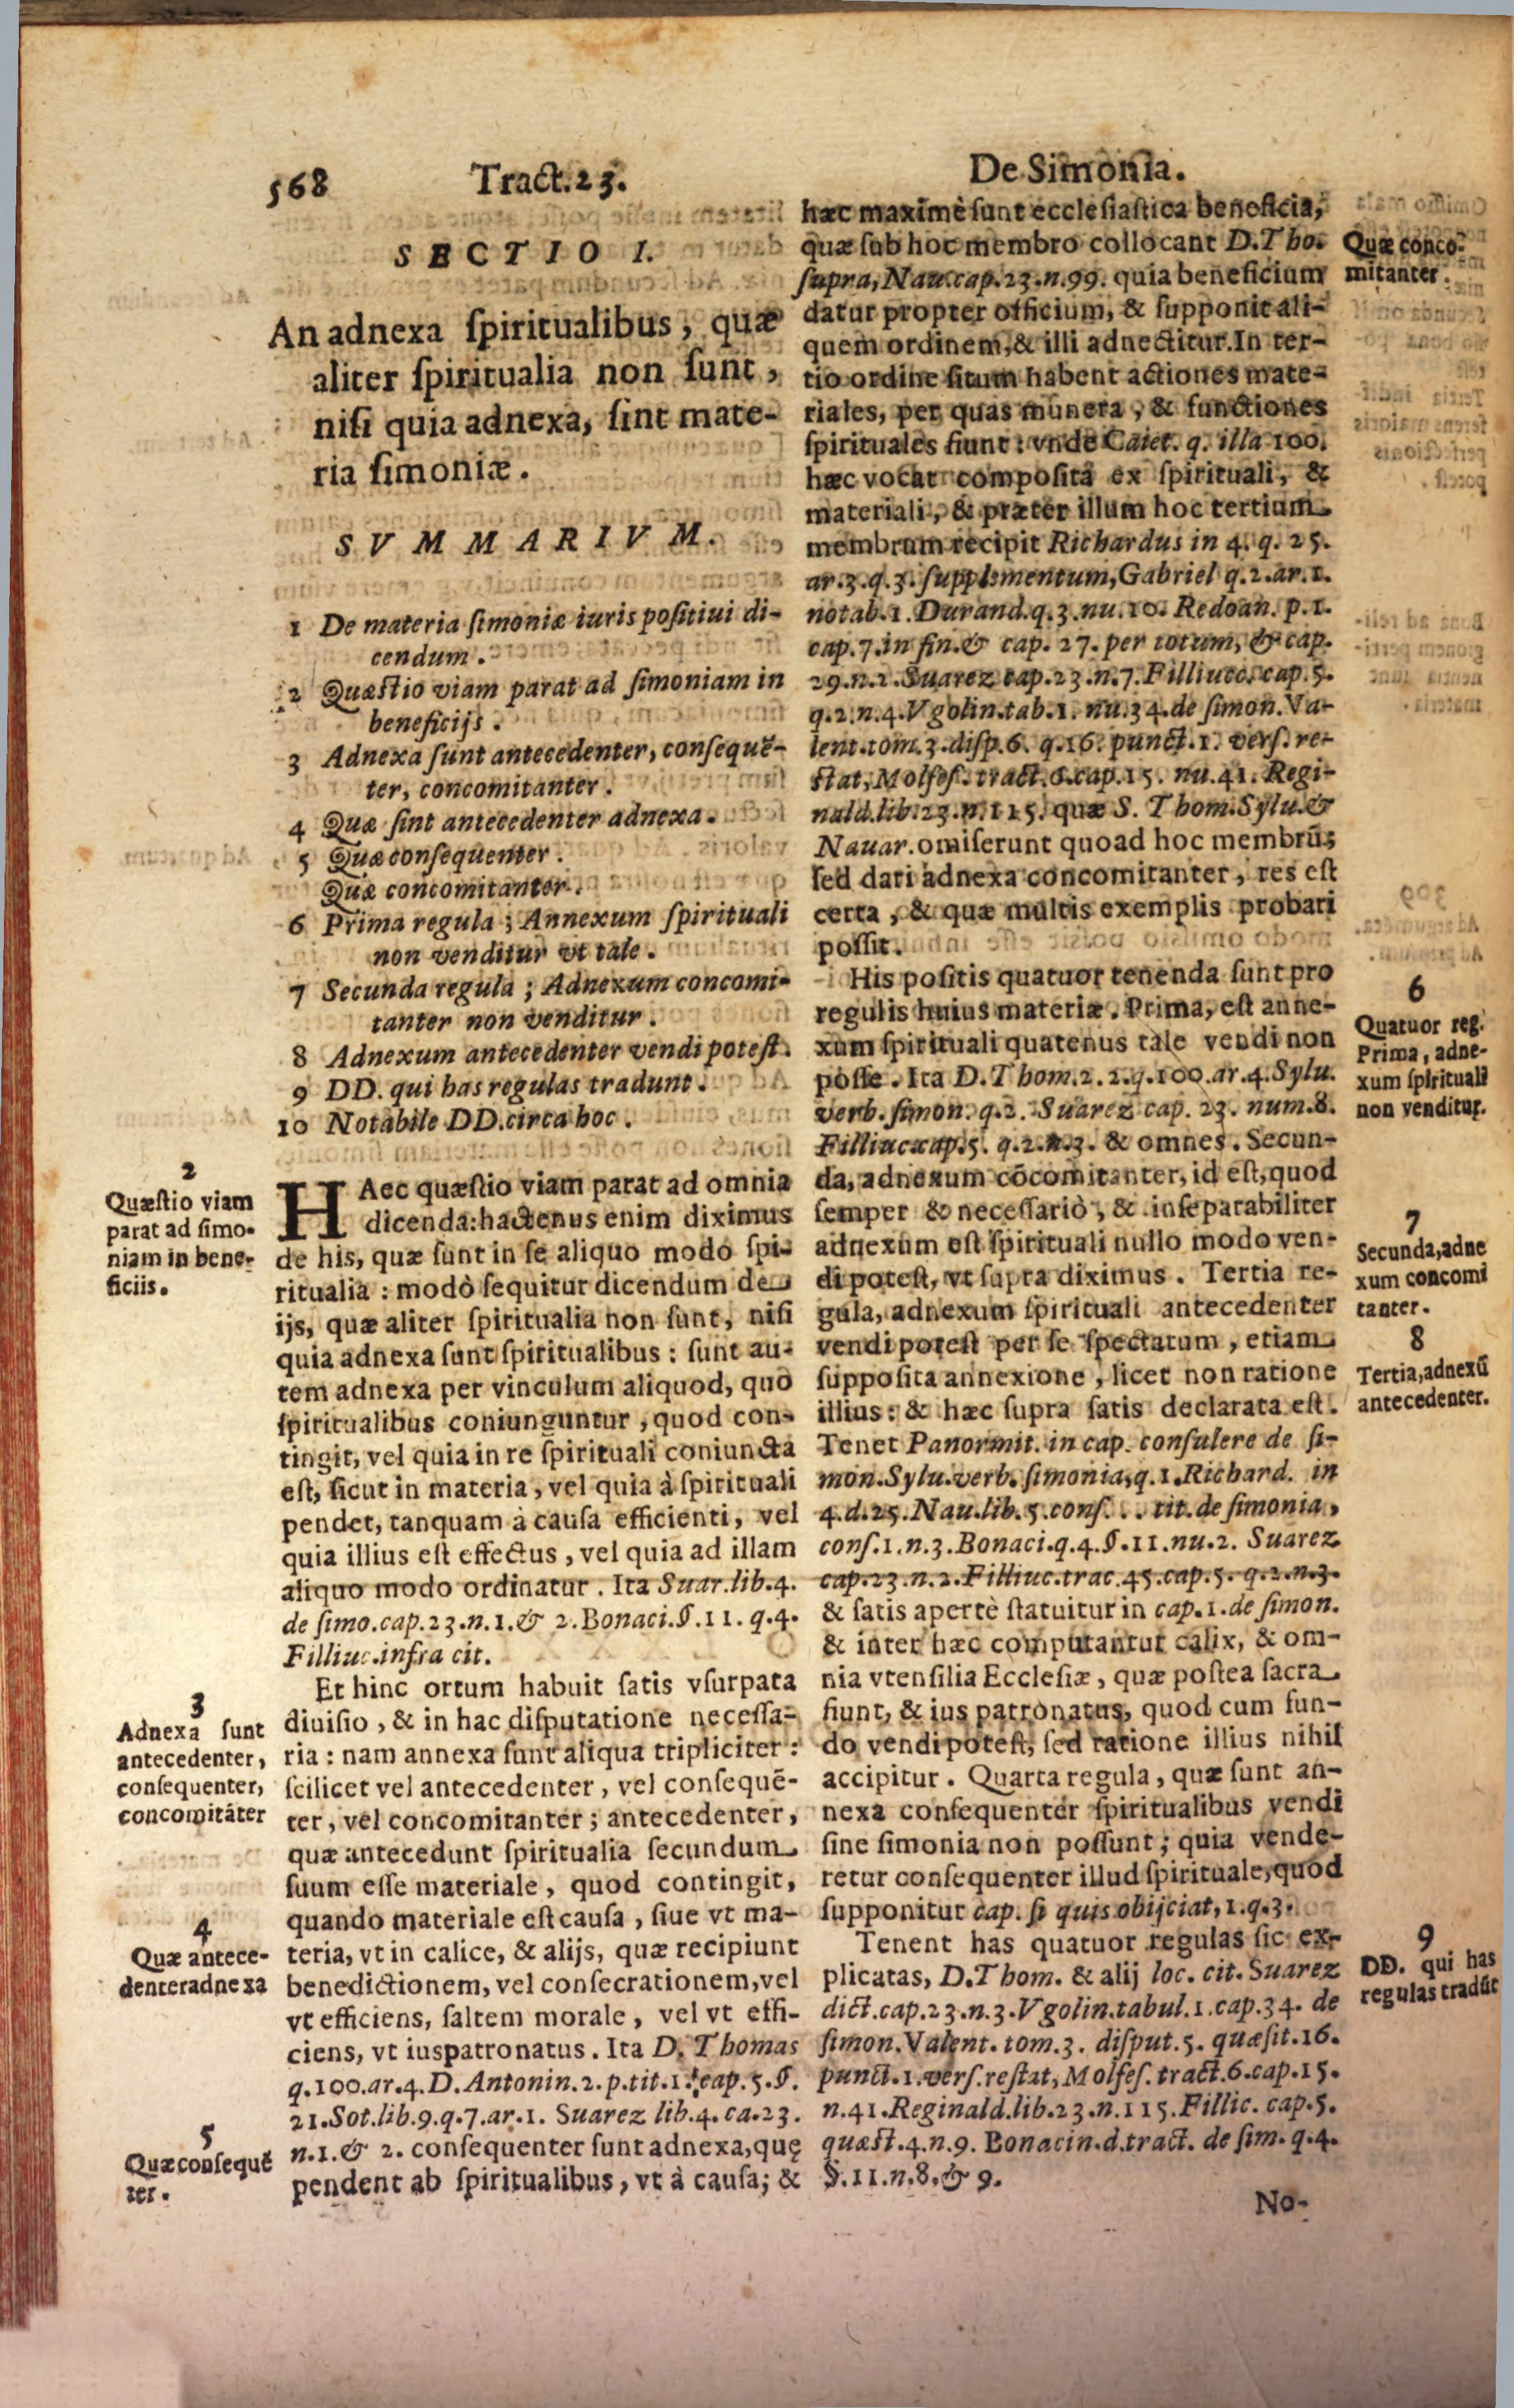 568 Tract.23. De Simonia.
SECTIO I.
An adnexa ſpiritualibus, quæ
aliter ſpiritualia non ſunt,
niſi quia adnexa, ſint mate-
ria ſimoniæ.
SVMMARIVM.
1 De materia ſimoniæ iuris poſitiui di-
cendum.
2 Quæſtio viam parat ad ſimoniam in
beneficijs.
3 Adnexa ſunt antecedenter, conſequẽ-
ter, concomitanter.
4 Quæ ſint antecedenter adnexa.
5 Quæ conſequenter.
Quæ concomitanter.
6 Prima regula; Annexum ſpirituali
non venditur vt tale.
7 Secunda regula; Adnexum concomi-
tanter non venditur.
8 Adnexum antecedenter vendi poteſt.
9 DD. qui has regulas tradunt.
10 Notabile DD. circa hoc.
2
Quæſtio viam
parat ad ſimo-
niam in bene-
ficiis.
HAec quæſtio viam parat ad omnia
dicenda: hactenus enim diximus
de his, quæ ſunt in ſe aliquo modo ſpi-
ritualia: modò ſequitur dicendum de
ijs, quæ aliter ſpiritualia non ſunt, niſi
quia adnexa ſunt ſpiritualibus: ſunt au-
tem adnexa per vinculum aliquod, quo
ſpiritualibus coniunguntur, quod con-
tingit, vel quia in re ſpirituali coniuncta
eſt, ſicut in materia, vel quia à ſpirituali
pendet, tanquam à cauſa efficienti, vel
quia illius eſt effectus, vel quia ad illam
aliquo modo ordinatur. Ita Suar.lib.4.
de ſimo.cap.23.n.1.& 2.Bonaci.§.11. q.4.
Filliuc.infra cit.
Et hinc ortum habuit ſatis vſurpata
diuiſio, & in hac diſputatione neceſſa-
ria: nam annexa ſunt aliqua tripliciter:
ſcilicet vel antecedenter, vel conſequẽ-
ter, vel concomitanter; antecedenter,
quæ antecedunt ſpiritualia ſecundum
ſuum eſſe materiale, quod contingit,
quando materiale eſt cauſa, ſiue vt ma-
teria, vt in calice, & alijs, quæ recipiunt
benedictionem, vel conſecrationem, vel
vt efficiens, ſaltem morale, vel vt effi-
ciens, vt iuspatronatus. Ita D. Thomas
q.100.ar.4.D.Antonin.2.p.tit.1. cap.5.§.
21.Sot.lib.9.q.7.ar.1. Suarez lib.4.ca.23.
n.1.& 2. conſequenter ſunt adnexa, quę
pendent ab ſpiritualibus, vt à cauſa; &
3
Adnexa ſunt
antecedenter,
conſequenter,
concomitãter
4
Quæ antece-
denter adnexa
5
Quæ conſequẽ
ter.
hæc maximè ſunt eccleſiaſtica beneficia,
quæ ſub hoc membro collocant D.Tho.
ſupra, Nau.cap.23.n.99. quia beneficium
datur propter officium, & ſupponit ali-
quem ordinem, & illi adnectitur. In ter-
tio ordine ſitum habent actiones mate-
riales, per quas munera, & functiones
ſpirituales fiunt: vnde Caiet. q. illa 100.
hæc vocat compoſita ex ſpirituali, &
materiali, & præter illum hoc tertium
membrum recipit Richardus in 4. q. 25.
ar.3.q.3. ſupplementum, Gabriel q.2.ar.1.
notab.1. Durand.q.3.nu.10. Redoan. p.1.
cap.7.in fin.& cap. 27. per totum, & cap.
29.n.2.Suarez cap.23.n.7.Filliucc.cap.5.
q.2.n.4.Vgolin.tab.1. nu.34.de ſimon.Va-
lent.tom.3.diſp.6. q.16. punct.1. verſ.re-
ſtat, Molfeſ. tract.6.cap.15. nu.41. Regi-
nald.lib.23.n.115. quæ S. Thom.Sylu.&
Nauar. omiſerunt quoad hoc membrũ;
ſed dari adnexa concomitanter, res eſt
certa, & quæ multis exemplis probari
poſſit.
His poſitis quatuor tenenda ſunt pro
regulis huius materiæ. Prima, eſt anne-
xum ſpirituali quatenus tale vendi non
poſſe. Ita D.Thom.2.2.q.100.ar.4.Sylu.
verb.ſimon. q.2. Suarez cap. 23. num.8.
Filliuc.cap.5. q.2.n.3. & omnes. Secun-
da, adnexum cõcomitanter, id eſt, quod
ſemper & neceſſariò, & inſeparabiliter
adnexum eſt ſpirituali nullo modo ven-
di poteſt, vt ſupra diximus. Tertia re-
gula, adnexum ſpirituali antecedenter
vendi poteſt per ſe ſpectatum, etiam
ſuppoſita annexione, licet non ratione
illius: & hæc ſupra ſatis declarata eſt.
Tenet Panormit. in cap. conſulere de ſi-
mon.Sylu.verb.ſimonia,q.1.Richard. in
4.d.25.Nau.lib.5.conſ... tit.de ſimonia,
conſ.1.n.3.Bonaci.q.4.§.11.nu.2. Suarez
cap.23.n.2.Filliuc.trac.45.cap.5. q.2.n.3.
& ſatis apertè ſtatuitur in cap.1.de ſimon.
& inter hæc computantur calix, & om-
nia vtenſilia Eccleſiæ, quæ poſtea ſacra
fiunt, & ius patronatus, quod cum fun-
do vendi poteſt, ſed ratione illius nihil
accipitur. Quarta regula, quæ ſunt an-
nexa conſequenter ſpiritualibus vendi
ſine ſimonia non poſſunt; quia vende-
retur conſequenter illud ſpirituale, quod
ſupponitur cap. ſi quis obijciat, 1.q.3.
Tenent has quatuor regulas ſic ex-
plicatas, D.Thom. & alij loc. cit. Suarez
dict.cap.23.n.3.Vgolin.tabul.1.cap.34. de
ſimon.Valent. tom.3. diſput.5. quæſit.16.
punct.1.verſ.reſtat, Molfeſ. tract.6.cap.15.
n.41.Reginald.lib.23.n.115.Fillic. cap.5.
quæſt.4.n.9. Bonacin.d.tract. de ſim. q.4.
§.11.n.8.& 9.
No-
Quæ conco-
mitanter.
6
Quatuor reg.
Prima, adne-
xum ſpirituali
non venditur.
7
Secunda, adne
xum concomi
tanter.
8
Tertia, adnexũ
antecedenter.
9
DD. qui has
regulas tradũt